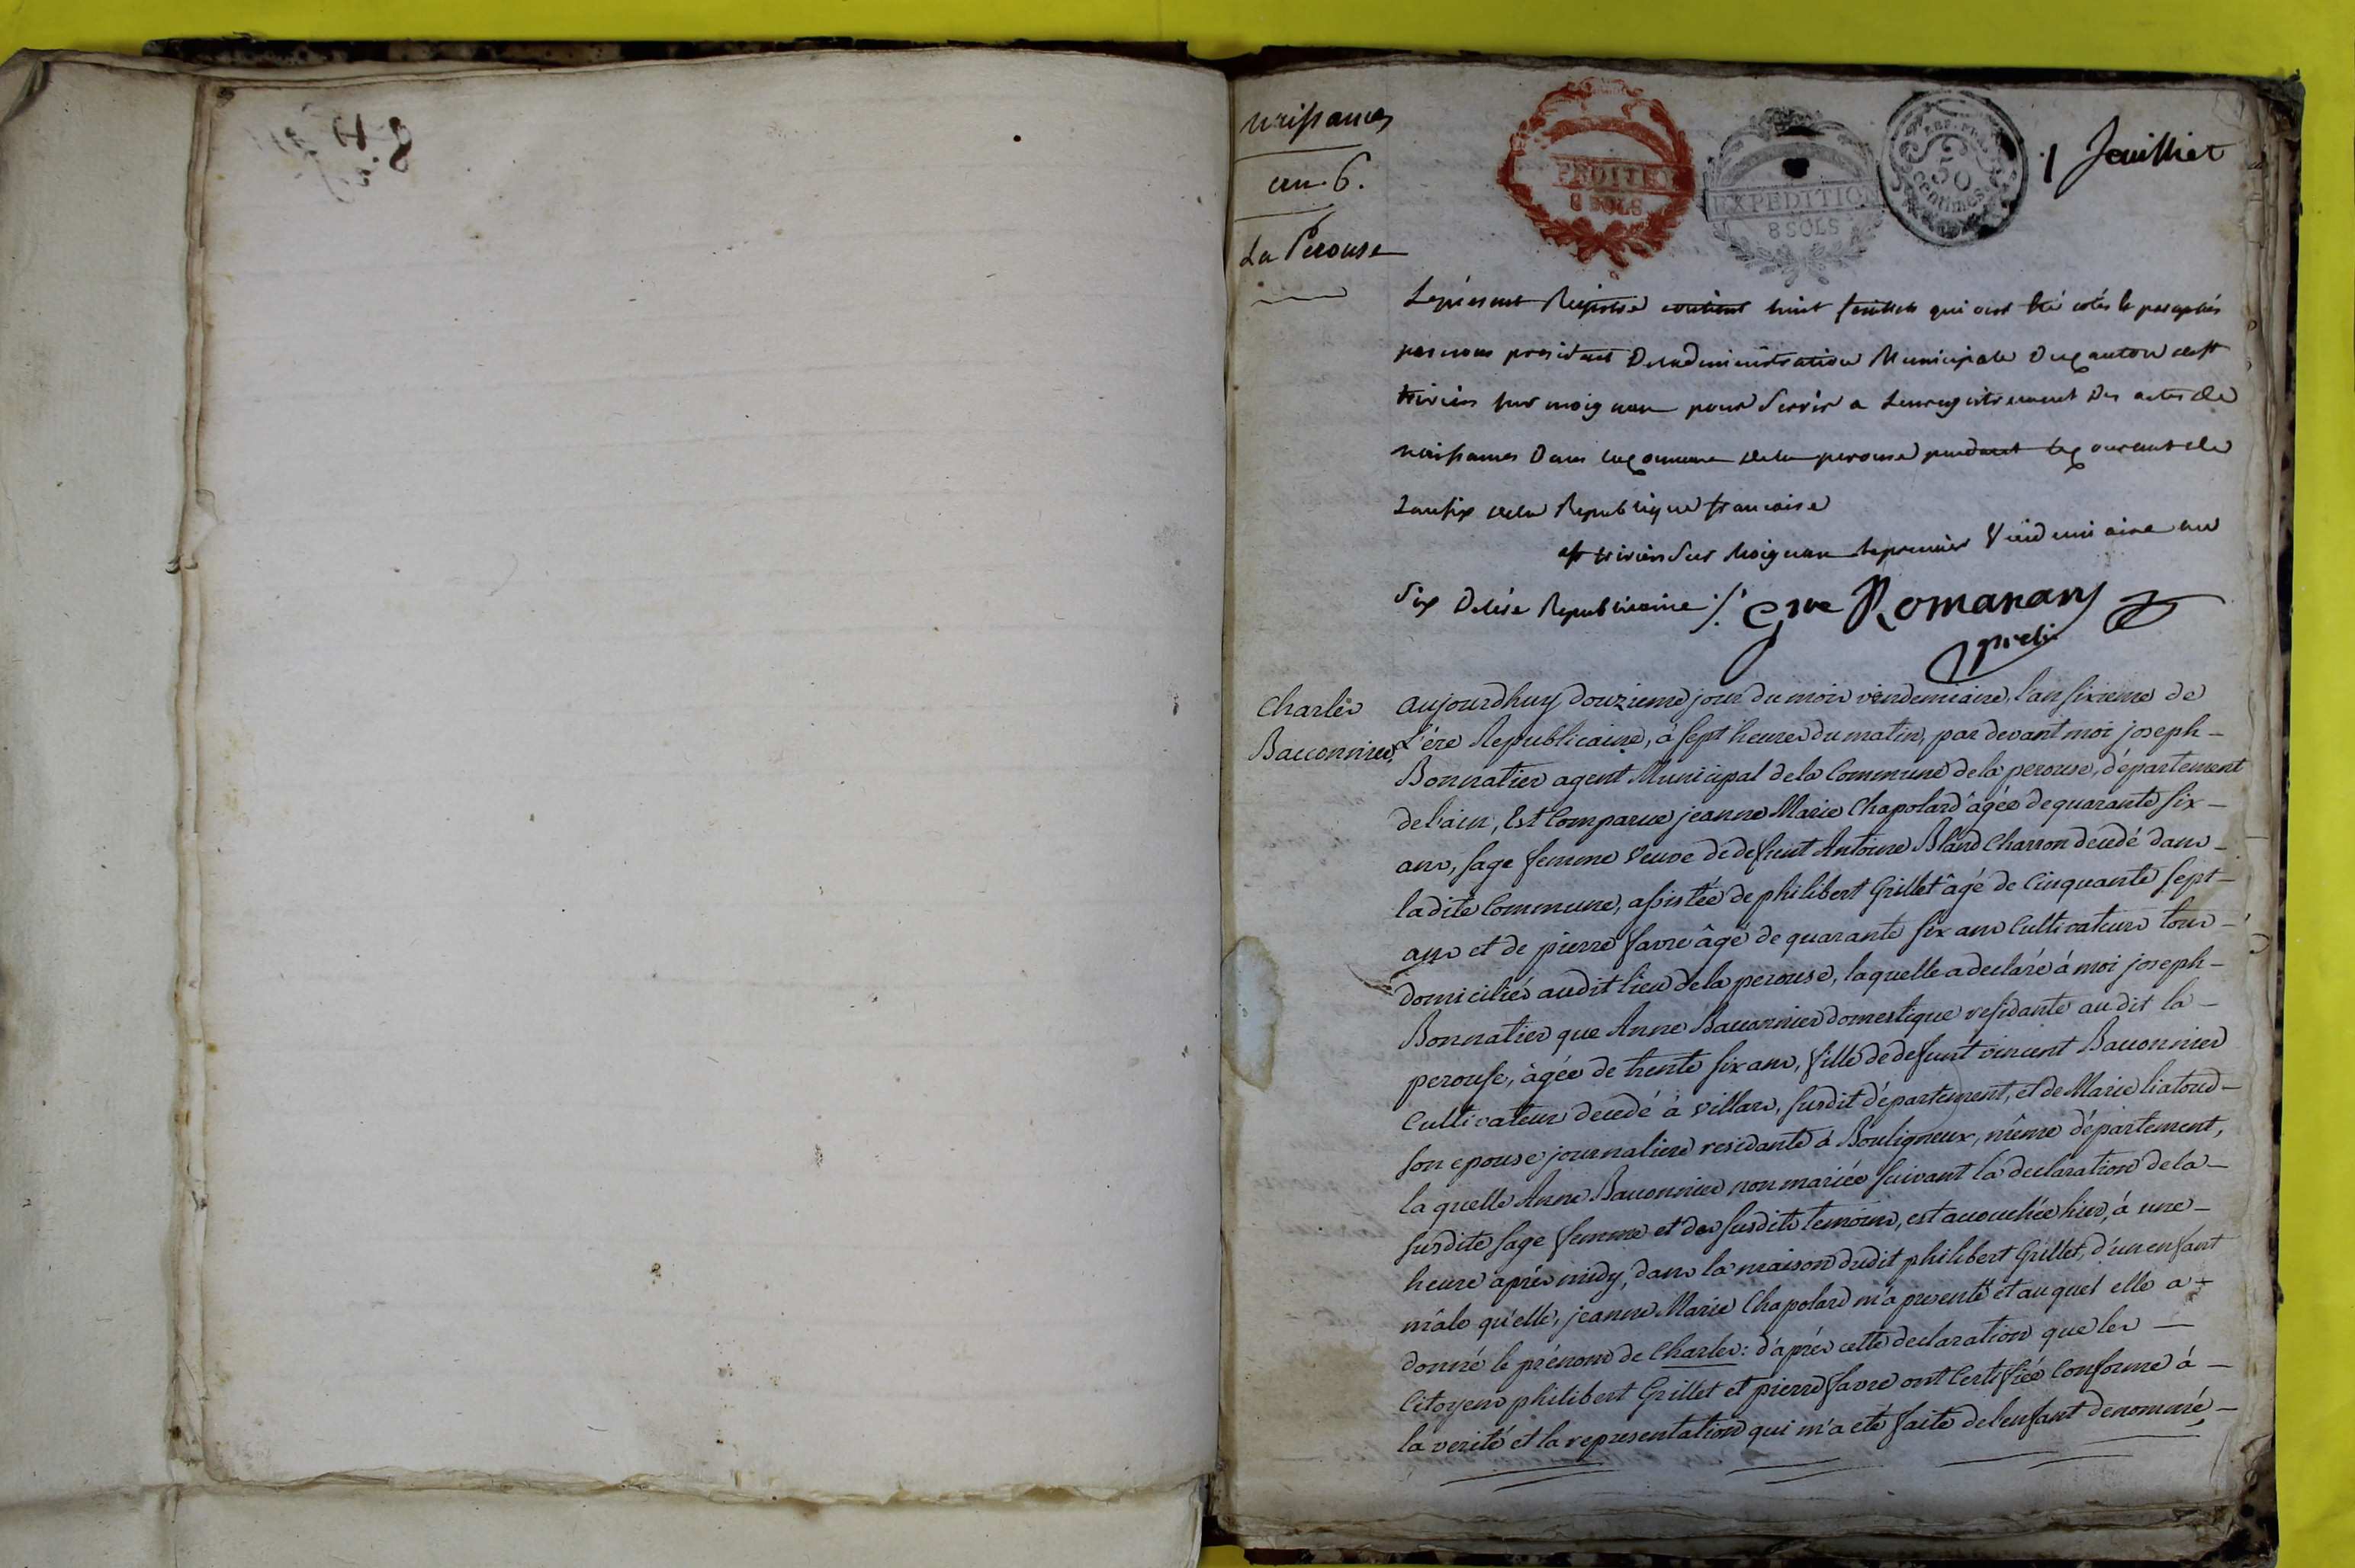 naissances
an. 6.
La Perouse
8 SOLS
EXPEDITION
8 SOLS
REP. FRA.
50
centimes
1 feuilliet
Le présent Registre contient huit feuillets qui ont été cotés et paraphés
par nous president De ladministration Municipale Du canton de st
trivier sur moignan pour Servir a Lenregistrement Des actes de
naissances Dans la commune de la perouse pendant le courant de
Lan six de la Republique francaise
a st trivier Sur Moignan le premier Vendemiaire an
Six De lère Republicaine ./. Romanans
presid
Charles
Bauonnier
aujourdhuy douzieme jour du mois vendemiaire, l'an sixieme de
L'ére Republicaine, á sept heures du matin, par devant moi joseph
Bonnatier agent Municipal de la Commune de la perouse, département
de l'ain, Est Comparue jeanne Marie Chapolard âgée de quarante six
ans, sage femme Veuve de defunt Antoine Bland Charron decedé dans
la dite Commune, assistée de philibert Grillet âgé de Cinquante sept
ans et de pierre favre âgé de quarante six ans Cultivateurs tous
domiciliés audit lieu de la perouse, laquelle a declaré á moi joseph
Bonnatier que Anne Bauonnier domestique residante au dit la
perouse, âgée de trente six ans, fille de defunt vincent Bauonnier
Cultivateur decedé á villars, susdit département, et de Marie liatoud
son epouse journaliere residante á Bouligneux, même département,
la quelle Anne Bauonnier non mariée suivant la declaration de la
susdite sage femme et des susdits temoins, est acouchée hier, á une
heure aprés midy, dans la maison dudit philibert Grillet, d'un enfant
mâle qu'elle, jeanne Marie Chapolard m'a presenté et au quel elle a
donné le prénom de Charles: d'aprés cette declaration que les
Citoyens philibert Grillet et pierre favre ont Certifiée Conforme á
la verité et la representation qui m'a eté faite de l'enfant denommé